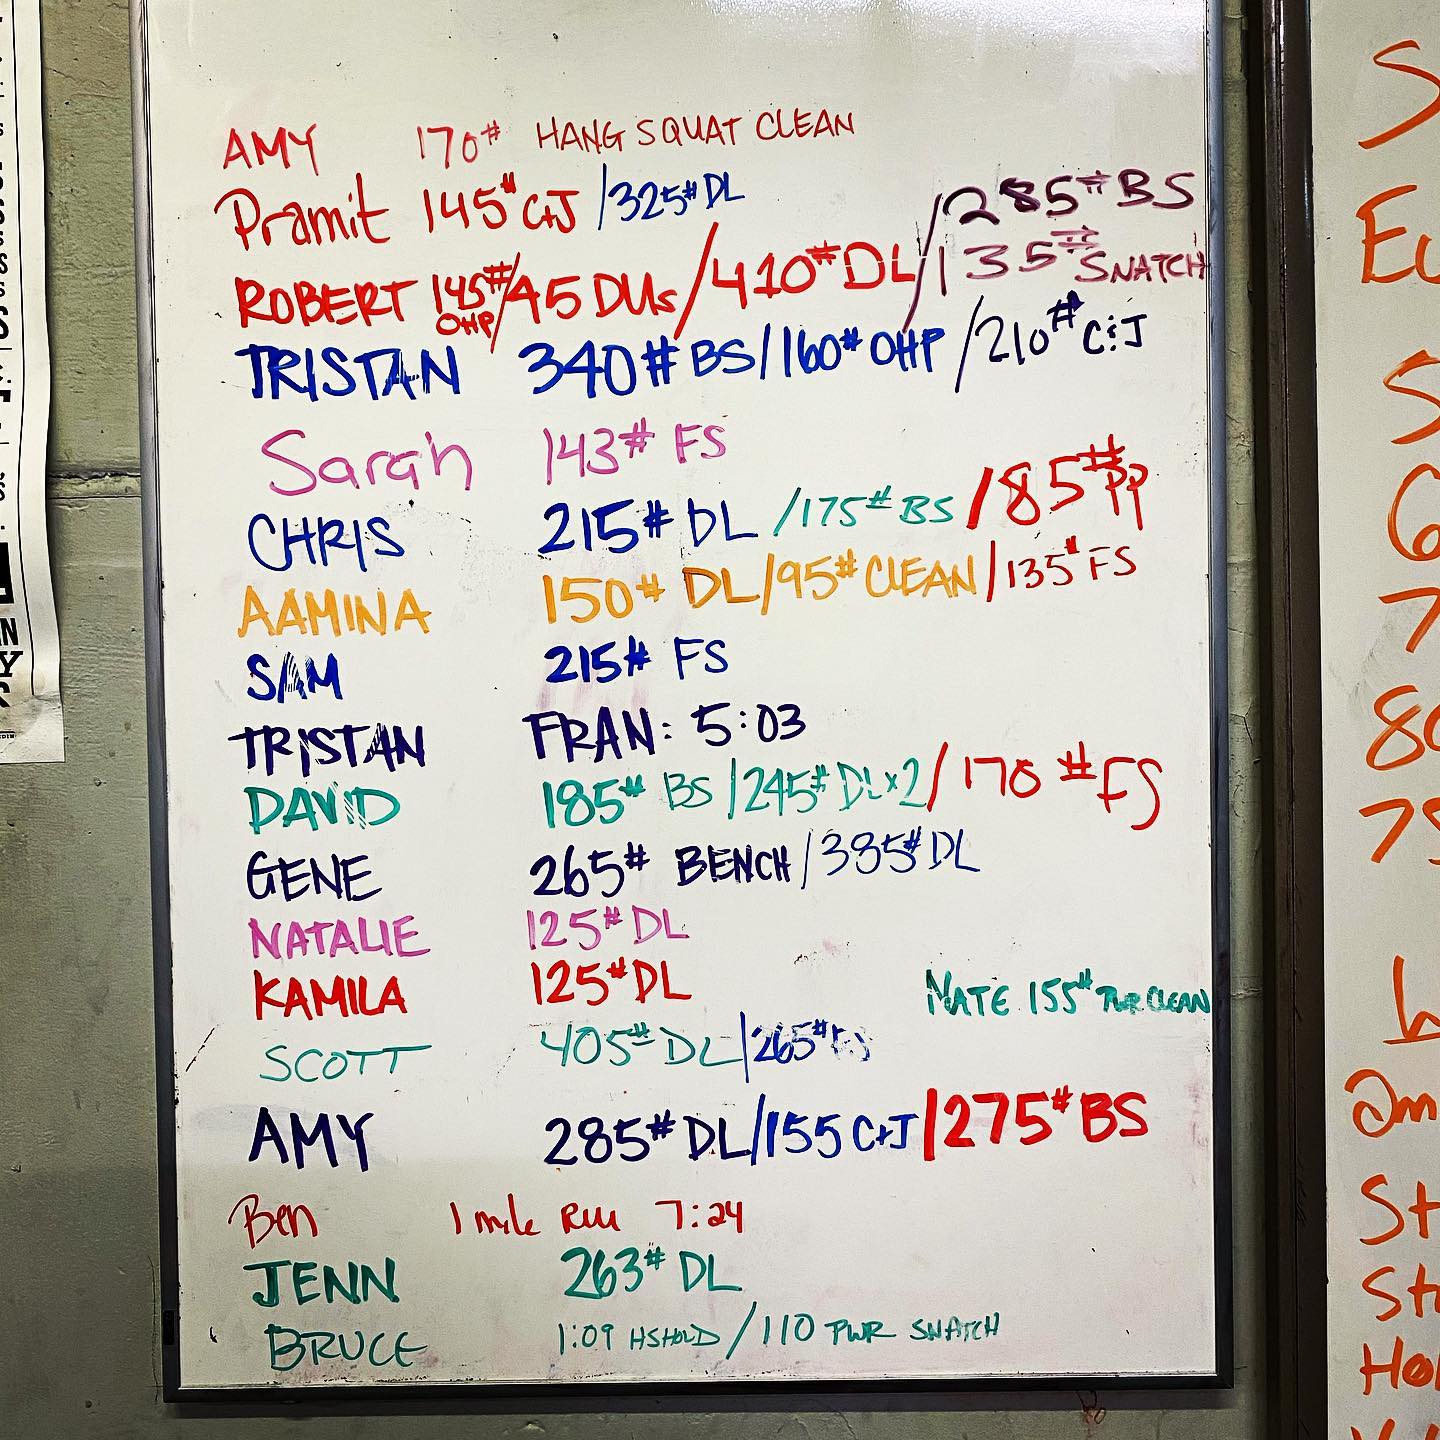 AMY 170# HANG SQUAT CLEAN
Pramit 145# C+J /325# DL
/285# BS
ROBERT 145# OHP/45 DUs/410# DL/135# SNATCH
TRISTAN 340# BS/160# OHP/210# C&J
Sarah 143# FS
CHRIS 215# DL /175# BS /85# PP
AAMINA 150# DL/95# CLEAN/135# FS
SAM 215# FS
TRISTAN FRAN: 5:03
DAVID 185# BS /245# DL x2/170 # FS
GENE 265# BENCH/385# DL
NATALIE 125# DL
KAMILA 125# DL
NATE 155# PWR CLEAN
SCOTT 405# DL/265# FS
AMY 285# DL/155 C+J/275# BS
Ben 1 mile Run 7:24
JENN 263# DL
BRUCE 1:09 HSHOLD /110 PWR SNATCH